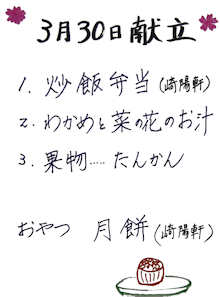 3月30日献立
1. 炒飯弁当(崎陽軒)
2. わかめと菜の花のお汁
3. 果物.....たんかん
おやつ 月餅(崎陽軒)